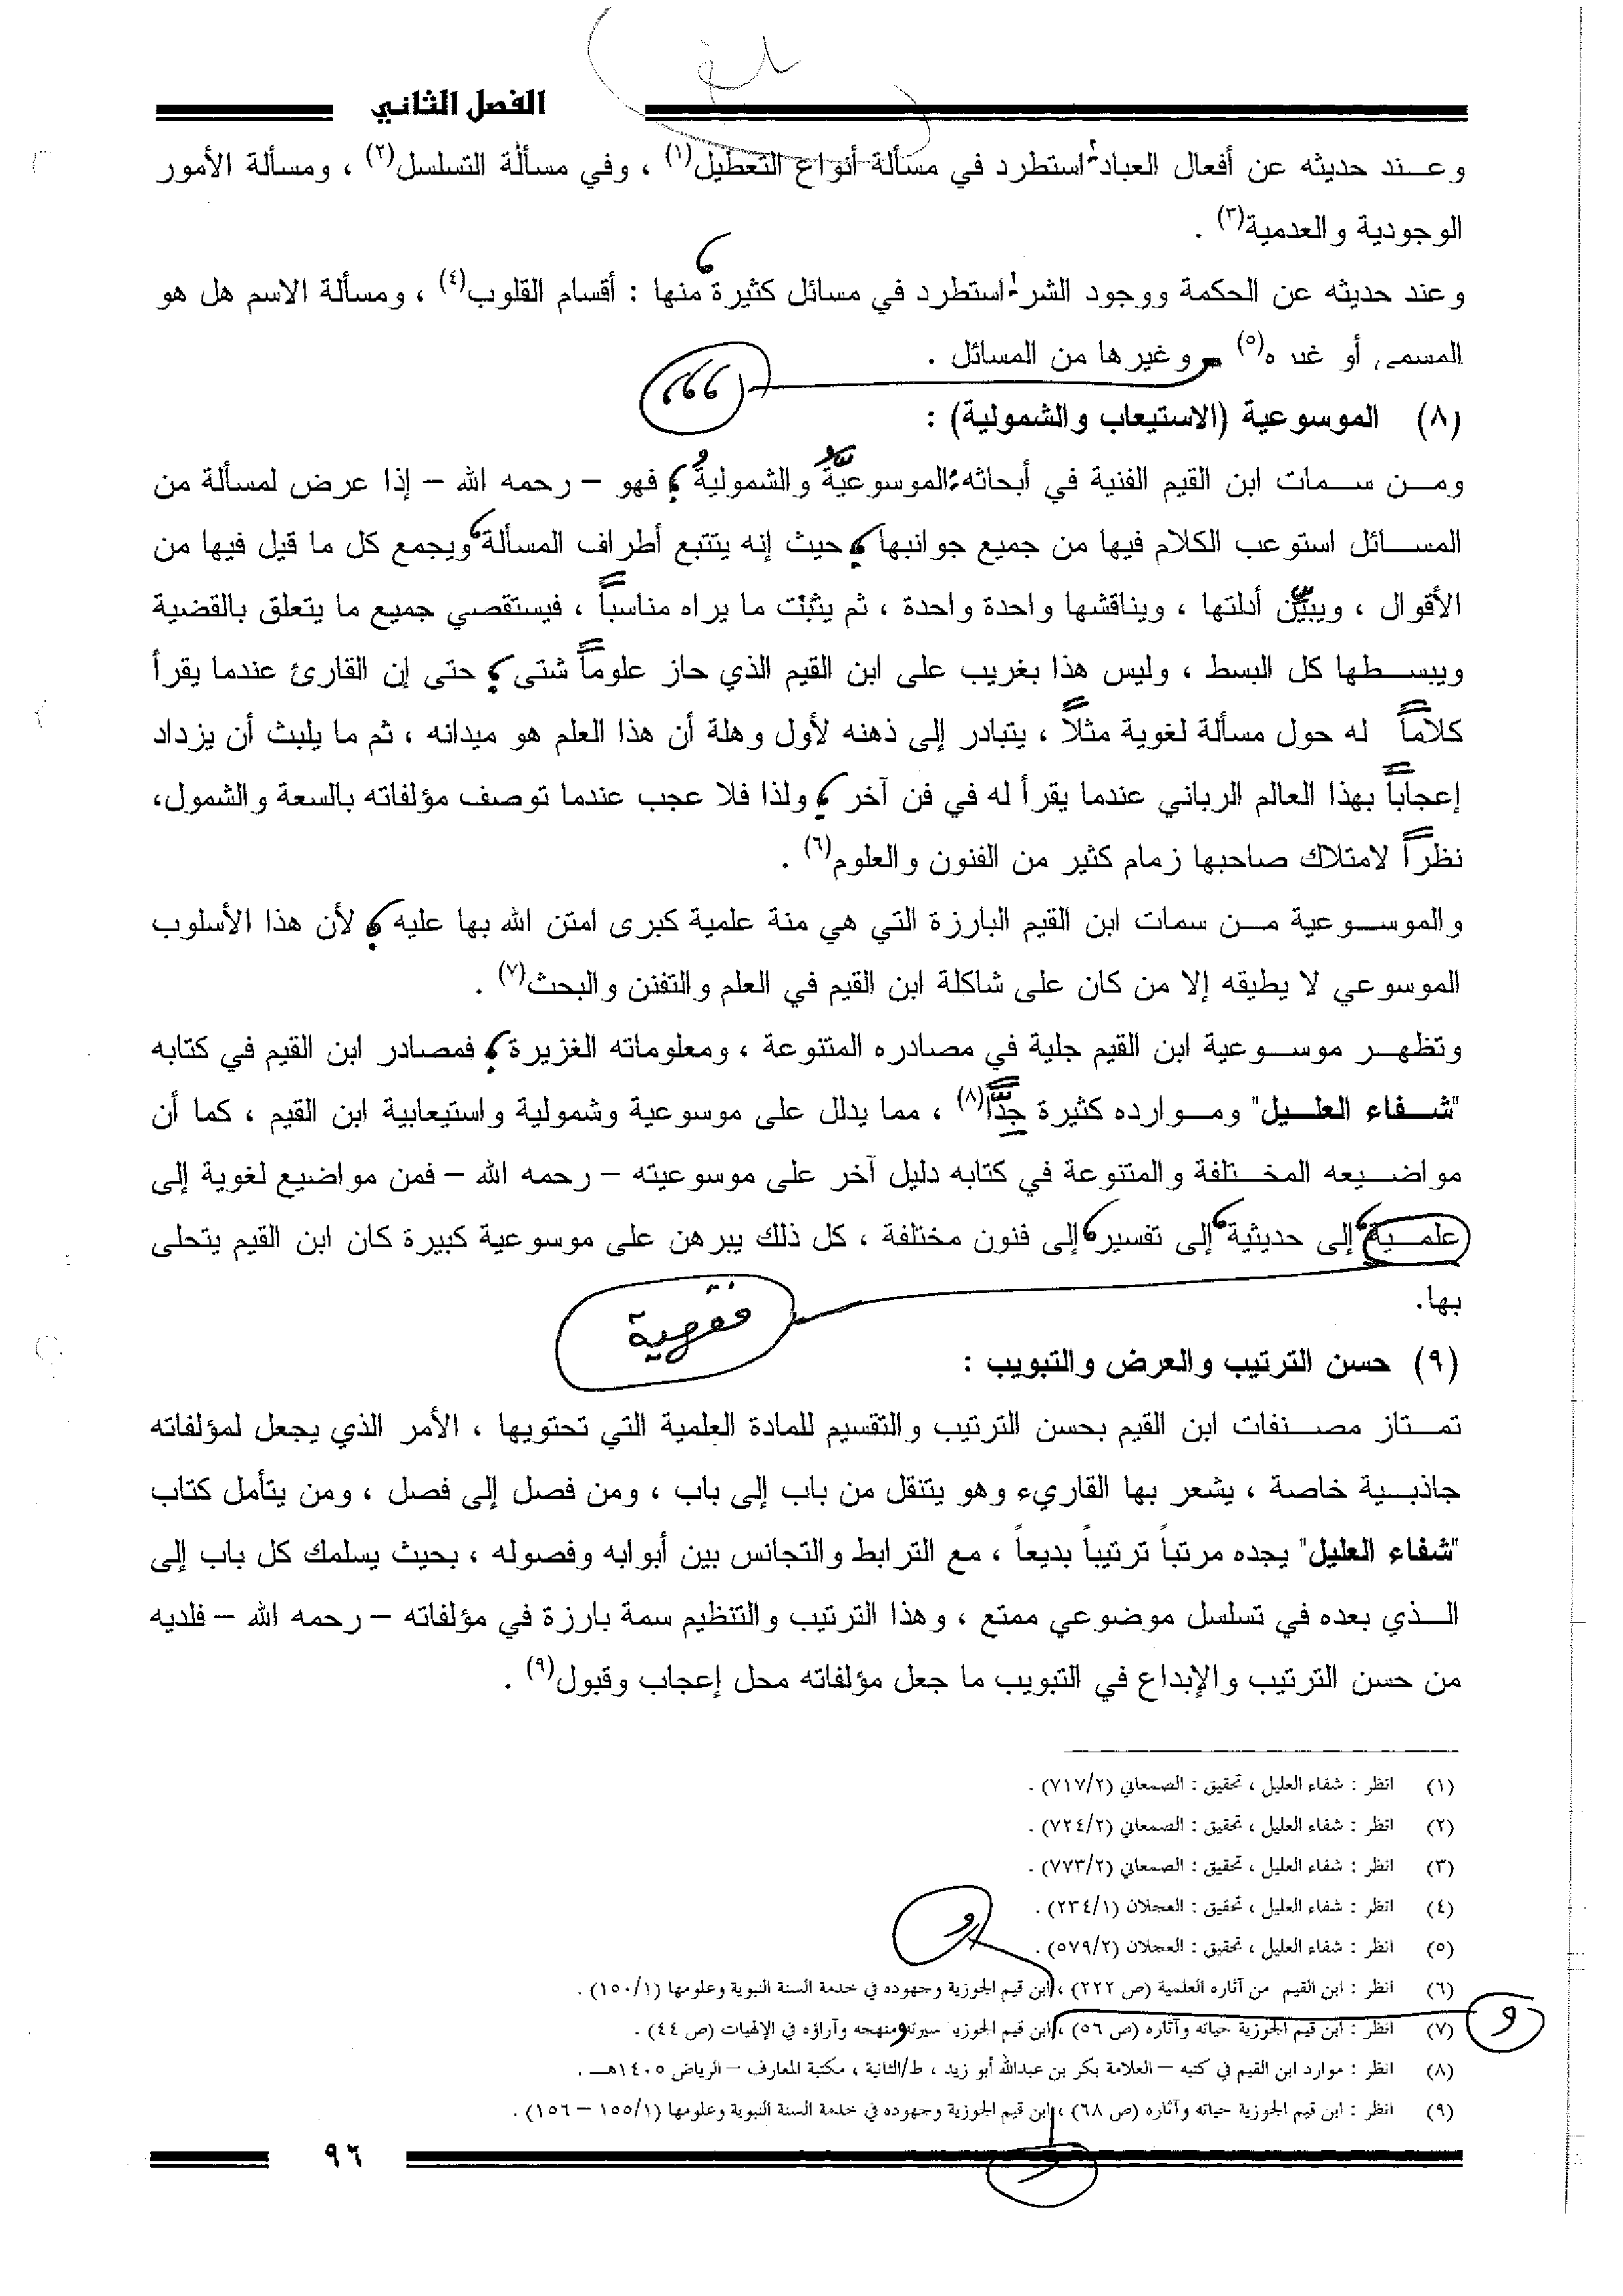 الفصل الثاني
وعند حديثه عن أفعال العباد استطرد في مسألة أنواع التعطيل(١) ، وفي مسألة التسلسل(٢) ، ومسألة الأمور
الوجودية والعدمية(٣) .
وعند حديثه عن الحكمة ووجود الشر استطرد في مسائل كثيرة منها : أقسام القلوب(٤) ، ومسألة الاسم هل هو
المسمى أو غيره(٥) وغيرها من المسائل .
(٨) الموسوعية (الاستيعاب والشمولية) :
ومن سمات ابن القيم الفنية في أبحاثه الموسوعية والشمولية ، فهو – رحمه الله – إذا عرض لمسألة من
المسائل استوعب الكلام فيها من جميع جوانبها ، حيث إنه يتتبع أطراف المسألة ، ويجمع كل ما قيل فيها من
الأقوال ، ويبيّن أدلتها ، ويناقشها واحدة واحدة ، ثم يثبت ما يراه مناسباً ، فيستقصي جميع ما يتعلق بالقضية
ويبسطها كل البسط ، وليس هذا بغريب على ابن القيم الذي حاز علوماً شتى ، حتى إن القارئ عندما يقرأ
كلاماً له حول مسألة لغوية مثلاً ، يتبادر إلى ذهنه لأول وهلة أن هذا العلم هو ميدانه ، ثم ما يلبث أن يزداد
إعجاباً بهذا العالم الرباني عندما يقرأ له في فن آخر ، ولذا فلا عجب عندما توصف مؤلفاته بالسعة والشمول،
نظراً لامتلاك صاحبها زمام كثير من الفنون والعلوم(٦) .
والموسوعية من سمات ابن القيم البارزة التي هي منة علمية كبرى امتن الله بها عليه ، لأن هذا الأسلوب
الموسوعي لا يطيقه إلا من كان على شاكلة ابن القيم في العلم والتفنن والبحث(٧) .
وتظهر موسوعية ابن القيم جلية في مصادره المتنوعة ، ومعلوماته الغزيرة ، فمصادر ابن القيم في كتابه
"شفاء العليل" وموارده كثيرة جدًّا(٨) ، مما يدلل على موسوعية وشمولية واستيعابية ابن القيم ، كما أن
مواضيعه المختلفة والمتنوعة في كتابه دليل آخر على موسوعيته – رحمه الله – فمن مواضيع لغوية إلى
علمية ، إلى حديثية ، إلى تفسير ، إلى فنون مختلفة ، كل ذلك يبرهن على موسوعية كبيرة كان ابن القيم يتحلى
بها.
فقهية
(٩) حسن الترتيب والعرض والتبويب :
تمتاز مصنفات ابن القيم بحسن الترتيب والتقسيم للمادة العلمية التي تحتويها ، الأمر الذي يجعل لمؤلفاته
جاذبية خاصة ، يشعر بها القاريء وهو يتنقل من باب إلى باب ، ومن فصل إلى فصل ، ومن يتأمل كتاب
"شفاء العليل" يجده مرتباً ترتيباً بديعاً ، مع الترابط والتجانس بين أبوابه وفصوله ، بحيث يسلمك كل باب إلى
الذي بعده في تسلسل موضوعي ممتع ، وهذا الترتيب والتنظيم سمة بارزة في مؤلفاته – رحمه الله – فلديه
من حسن الترتيب والإبداع في التبويب ما جعل مؤلفاته محل إعجاب وقبول(٩) .
(١) انظر : شفاء العليل ، تحقيق : الصمعاني (٧١٧/٢) .
(٢) انظر : شفاء العليل ، تحقيق : الصمعاني (٧٢٤/٢) .
(٣) انظر : شفاء العليل ، تحقيق : الصمعاني (٧٧٣/٢) .
(٤) انظر : شفاء العليل ، تحقيق : العجلان (٢٣٤/١) .
(٥) انظر : شفاء العليل ، تحقيق : العجلان (٥٧٩/٢) .
و
(٦) انظر : ابن القيم من آثاره العلمية (ص ٢٢٢) ، ابن قيم الجوزية وجهوده في خدمة السنة النبوية وعلومها (١٥٠/١) .
(٧) انظر : ابن قيم الجوزية حياته وآثاره (ص ٥٦) ، ابن قيم الجوزية سيرته ومنهجه وآراؤه في الإلهيات (ص ٤٤) .
و
(٨) انظر : موارد ابن القيم في كتبه – العلامة بكر بن عبدالله أبو زيد ، ط/الثانية ، مكتبة المعارف – الرياض ١٤٠٥هـ .
(٩) انظر : ابن قيم الجوزية حياته وآثاره (ص ٦٨) ، ابن قيم الجوزية وجهوده في خدمة السنة النبوية وعلومها (١٥٥/١ – ١٥٦) .
و
٩٦